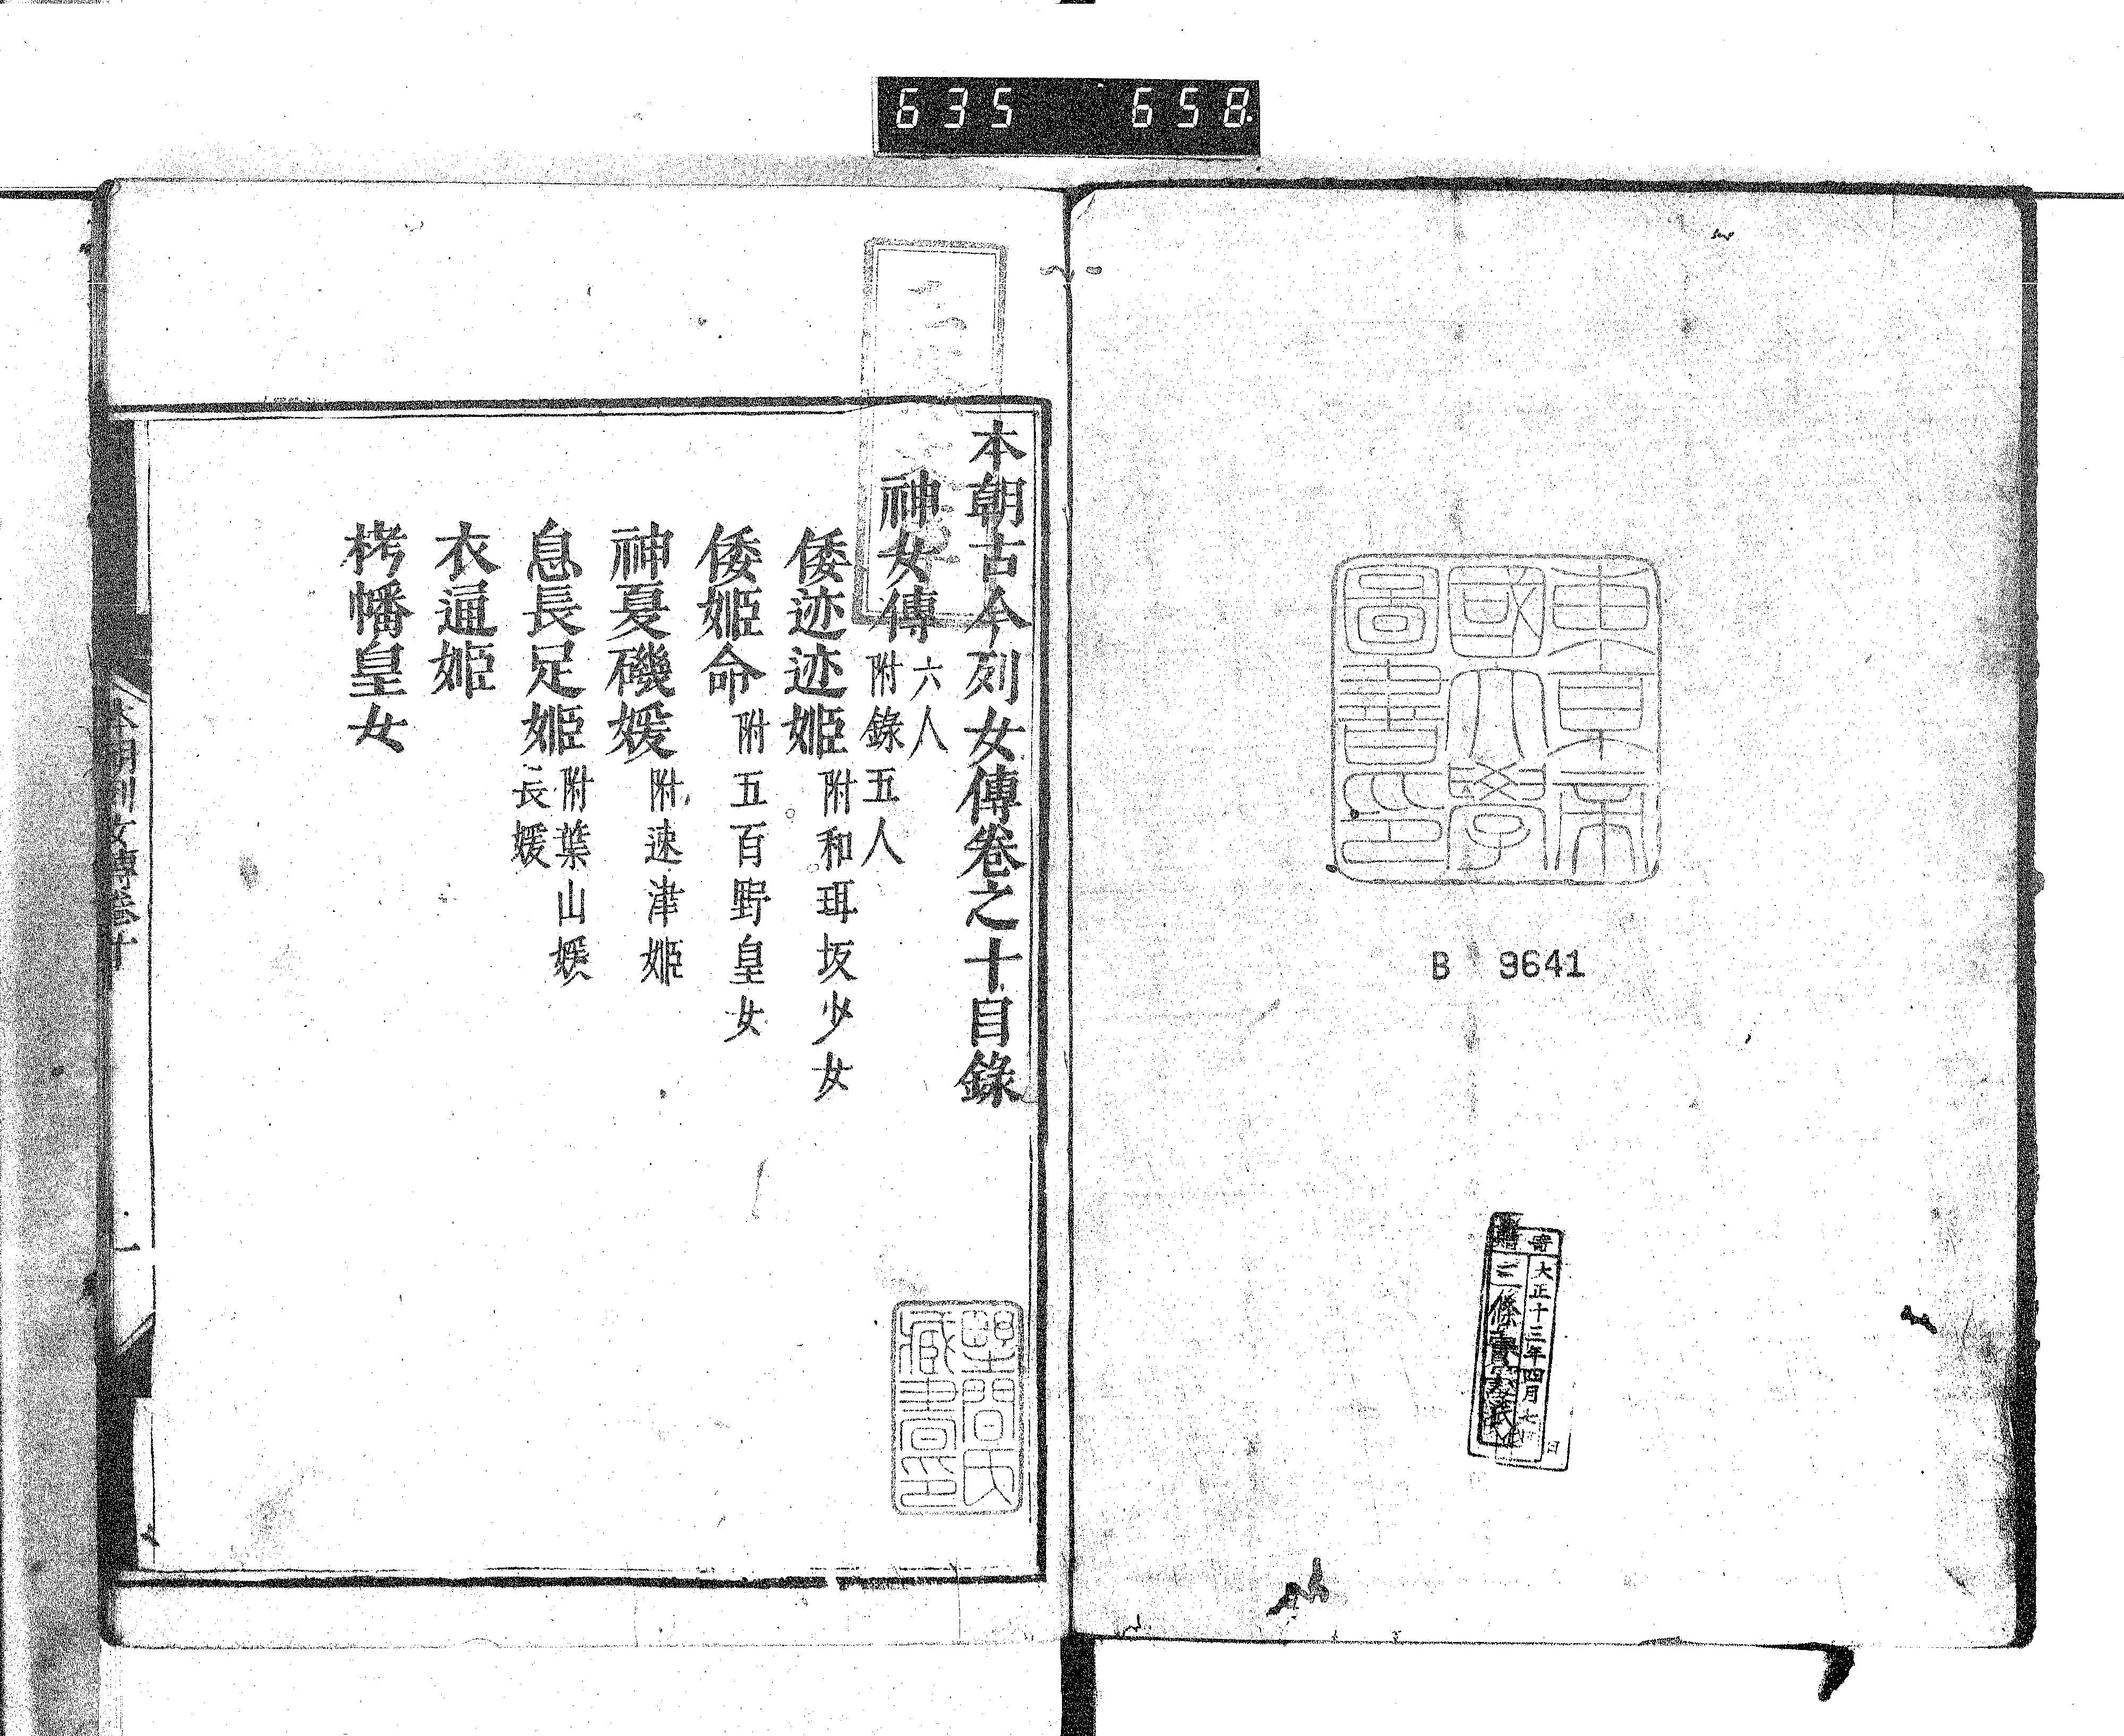 635 658
東京帝
國大學
圖書印
B 9641
寄贈
大正十三年四月七日
三條實憲氏
本朝古今列女傳卷之十目錄
神女傳 六人 附錄五人
倭迹迹姬 附和珥坂少女
倭姬命 附五百野皇女
神夏磯媛 附速津姬
息長足姬 附葉山媛 長媛
衣通姬
栲幡皇女
藏書印
本朝列女傳卷十
一